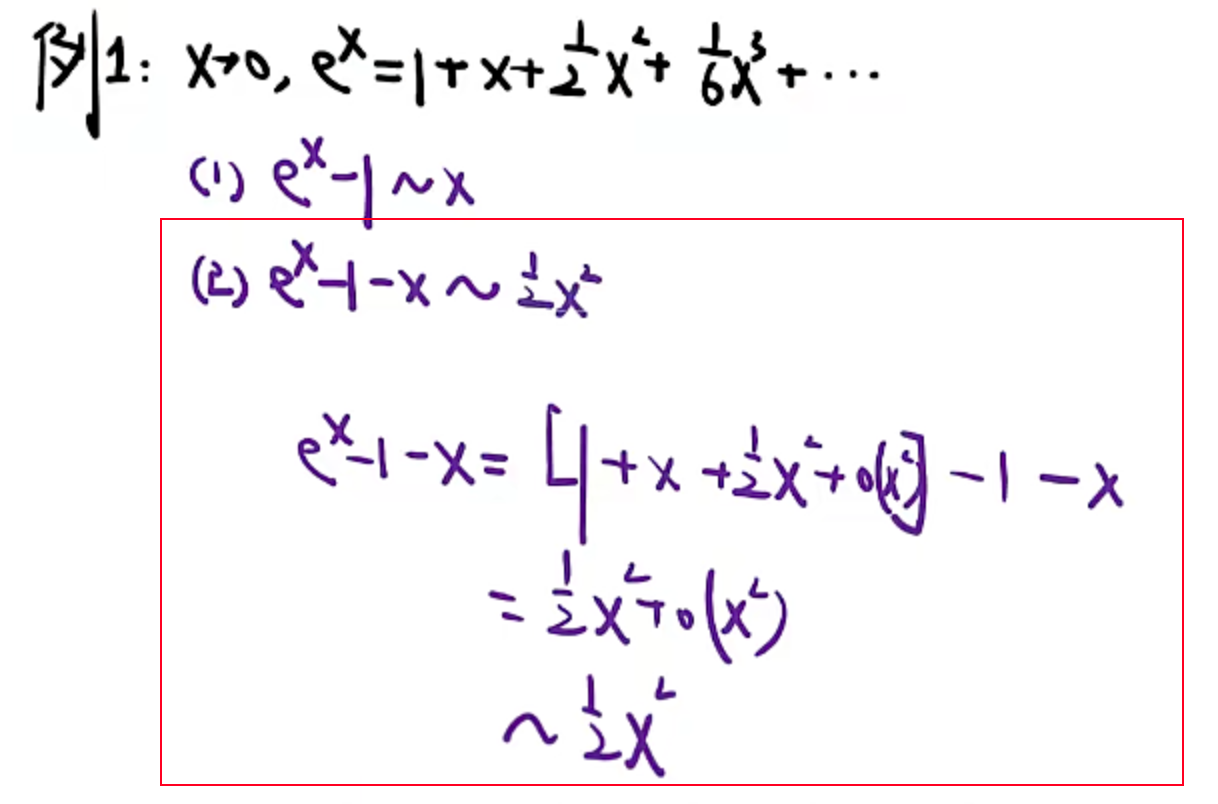 例1: x→0, eˣ=1+x+½x²+⅙x³+⋯
(1) eˣ-1~x
(2) eˣ-1-x~½x²
eˣ-1-x=[1+x+½x²+o(x²)]-1-x
=½x²+o(x²)
~½x²